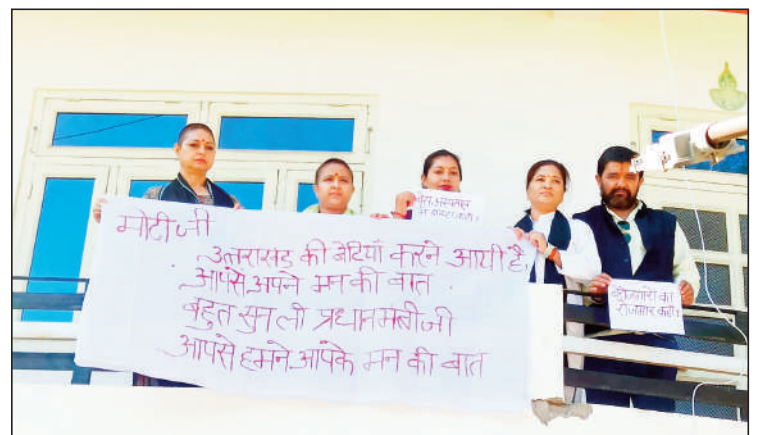 मोदी जी
उत्तराखंड की बेटियाँ करने आयी है,
आपसे अपने मन की बात.
बहुत सुन ली प्रधानमंत्री जी
आपसे हमने आपके मन की बात
बेरोजगारों का
रोजगार कहाँ?